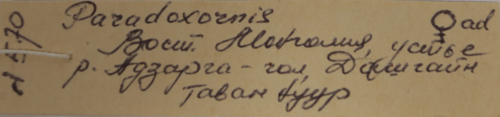 Paradoxornis ♀ ad
Вост. Монголия, устье
р. Адзарга-гол, Дашгайн
таван буур